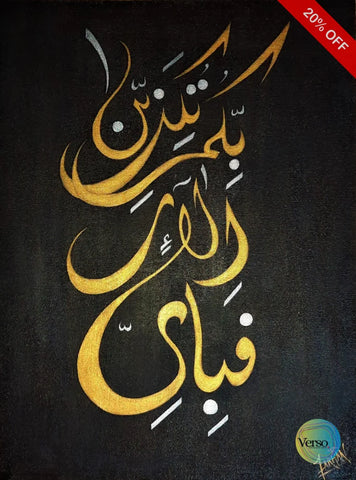 20% OFF
فبِأيِّ
آلاءِ
ربِّكُما
تُكذِّبان
Verso